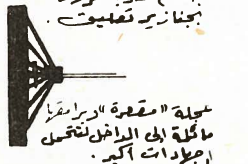 بجنازير تعليق.
عجلة "مقعرة" برامقها
مائلة إلى الداخل لتتحمل
إجهادات أكبر.